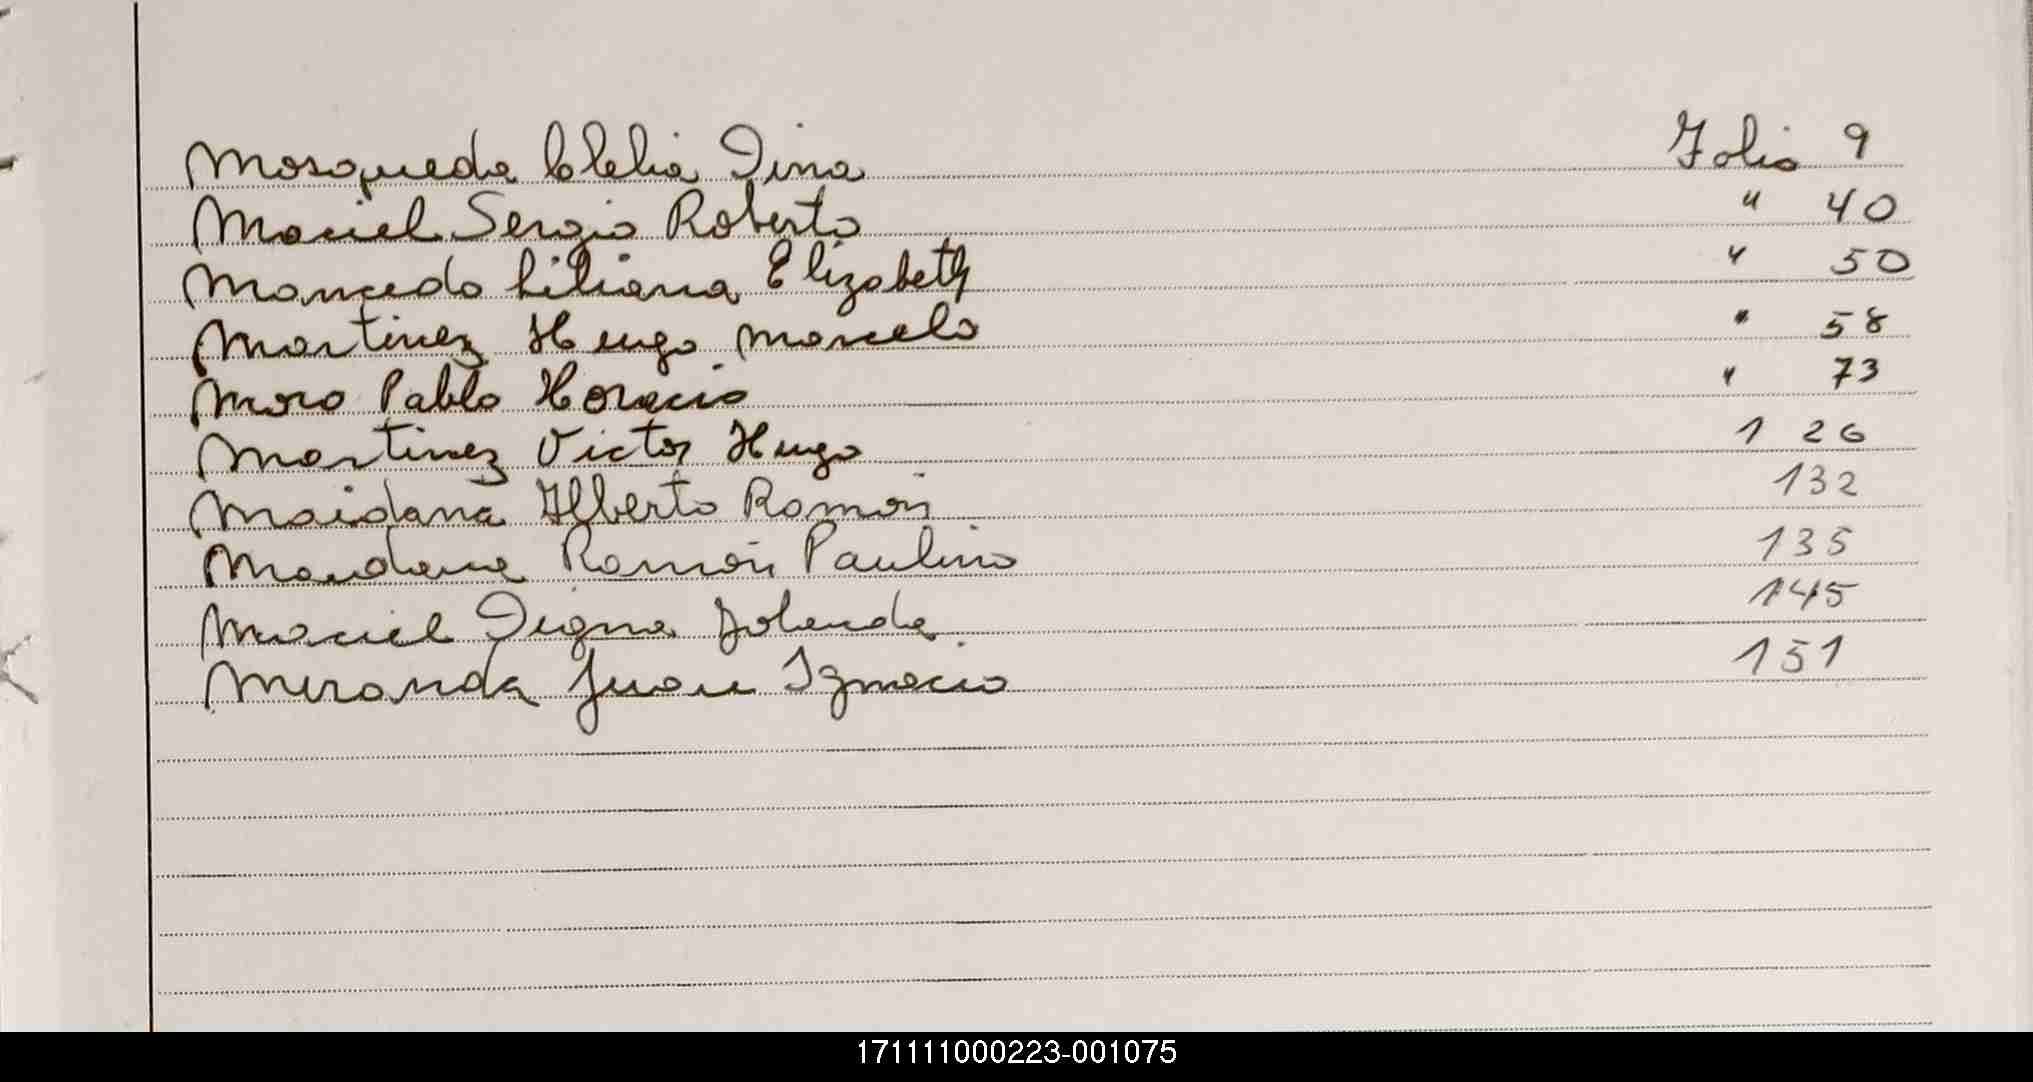 Mosqueda Clelia Dina Folio 9
Maciel Sergio Roberto " 40
Mancedo Liliana Elizabeth " 50
Martinez Hugo Marcelo " 58
Moro Pablo Horacio " 73
Martinez Victor Hugo 126
Maidana Alberto Ramon 132
Maidana Ramón Paulino 135
Maciel Digna Yolanda 145
Miranda Juan Ignacio 151
171111000223-001075